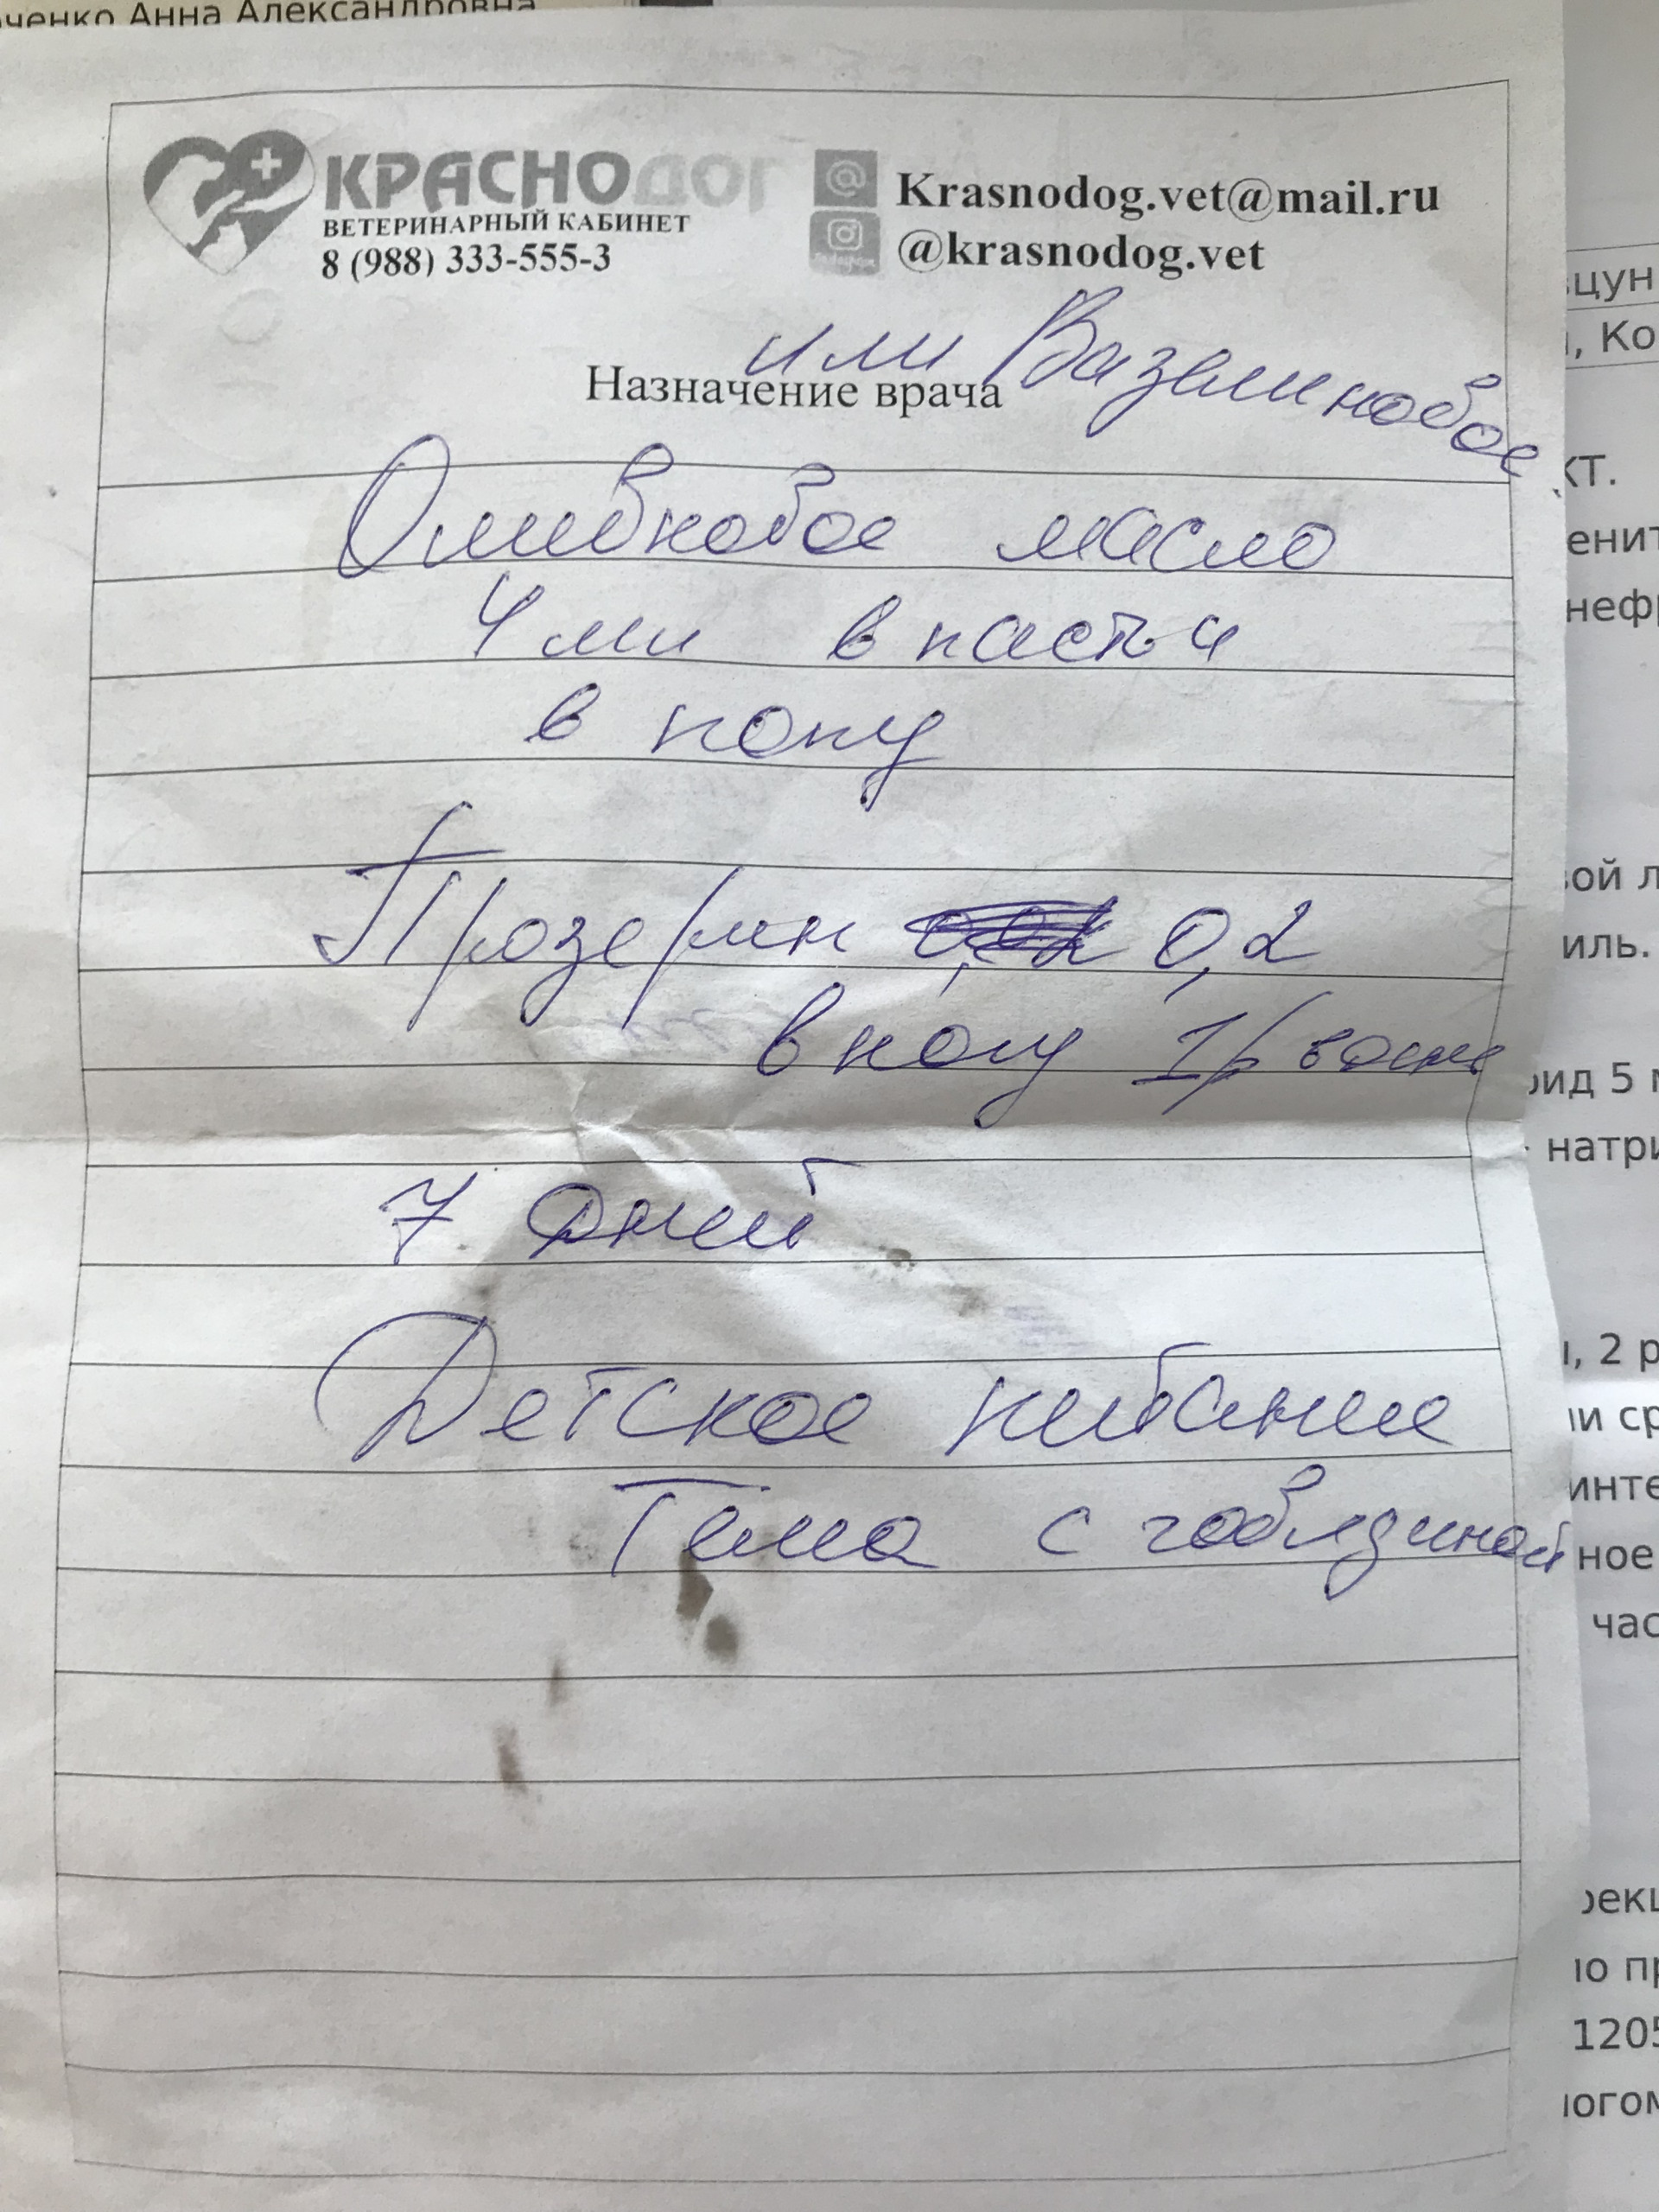 Анна Александровна
КРАСНОДОГ
ВЕТЕРИНАРНЫЙ КАБИНЕТ
8 (988) 333-555-3
Krasnodog.vet@mail.ru
@krasnodog.vet
или Вазелиновое
Назначение врача
Оливковое масло
4 мл в пасть и
в попу
Прозерин 0,2
в попу 1р в день
7 дней
Детское питание
Тема с говядиной
цун
, Ко
КТ.
енит
нефр
вой л
иль.
рид 5
натри
, 2 р
ли ср
инте
ное
час
рекц
но пр
1205
логом